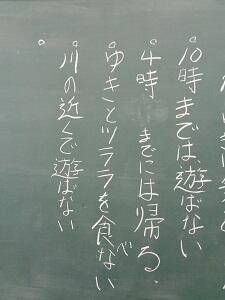 ○10時までは、遊ばない
○4時までには帰る、
○ゆきとツララを食べない
○川の近くで遊ばない
○